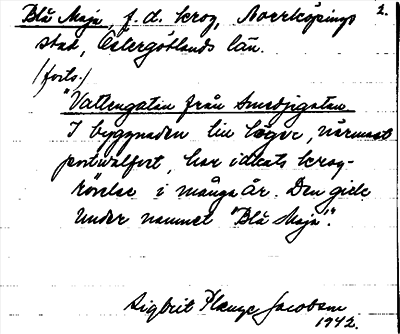 Blå Maja, f.d. krog, Norrköpings 2.
stad, Östergötlands län.
(forts.)
"Vattengatan från Smedjegatan
I byggnaden till höger, närmast
portvalvet, har idkats krog-
rörelse i många år. Den gick
under namnet "Blå Maja".
Sigbrit Plænge Jacobson
1942.